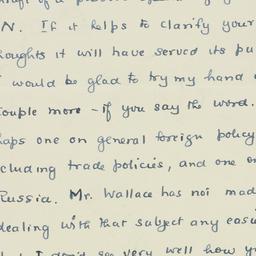 N. If it helps to clarify your
oughts it will have served its pu
I would be glad to try my hand
couple more - if you say the word.
haps one on general foreign policy
cluding trade policies, and one on
Russia. Mr. Wallace has not mad
dealing with that subject any easi
I don't see very well how y